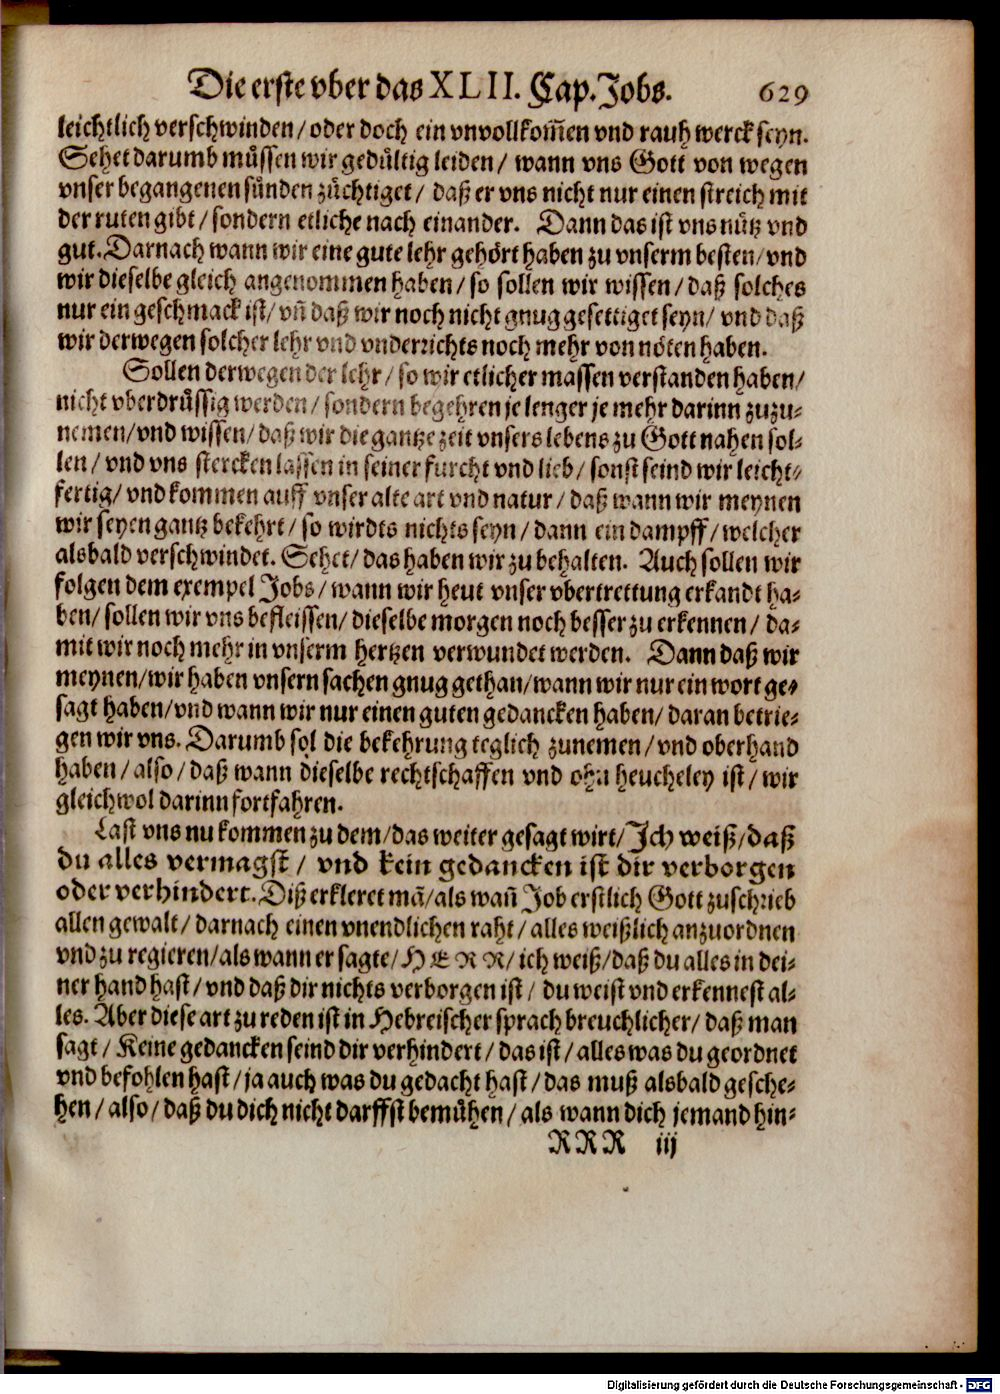 Die erste vber das XLII. Cap. Jobs. 629
leichtlich verschwinden/ oder doch ein vnvollkom̃en vnd rauh werck seyn.
Sehet darumb müssen wir gedültig leiden/ wann vns Gott von wegen
vnser begangenen sünden züchtiget/ daß er vns nicht nur einen streich mit
der ruten gibt/ sondern etliche nach einander. Dann das ist vns nütz vnd
gut. Darnach wann wir eine gute lehr gehört haben zu vnserm besten/ vnd
wir dieselbe gleich angenommen haben/ so sollen wir wissen/ daß solches
nur ein geschmack ist/ vñ daß wir noch nicht gnug gesettiget seyn/ vnd daß
wir derwegen solcher lehr vnd vnderrichts noch mehr von nöten haben.
Sollen derwegen der lehr/ so wir etlicher massen verstanden haben/
nicht vberdrüssig werden/ sondern begehren je lenger je mehr darinn zuzu-
nemen/ vnd wissen/ daß wir die gantze zeit vnsers lebens zu Gott nahen sol-
len/ vnd vns stercken lassen in seiner furcht vnd lieb/ sonst seind wir leicht-
fertig/ vnd kommen auff vnser alte art vnd natur/ daß wann wir meynen
wir seyen gantz bekehrt/ so wirdts nichts seyn/ dann ein dampff/ welcher
alsbald verschwindet. Sehet/ das haben wir zu behalten. Auch sollen wir
folgen dem exempel Jobs/ wann wir heut vnser vbertrettung erkandt ha-
ben/ sollen wir vns befleissen/ dieselbe morgen noch besser zu erkennen/ da-
mit wir noch mehr in vnserm hertzen verwundet werden. Dann daß wir
meynen/ wir haben vnsern sachen gnug gethan/ wann wir nur ein wort ge-
sagt haben/ vnd wann wir nur einen guten gedancken haben/ daran betrie-
gen wir vns. Darumb sol die bekehrung teglich zunemen/ vnd oberhand
haben/ also/ daß wann dieselbe rechtschaffen vnd ohn heucheley ist/ wir
gleichwol darinn fortfahren.
Last vns nu kommen zu dem/ das weiter gesagt wirt/ Jch weiß/ daß
du alles vermagst/ vnd kein gedancken ist dir verborgen
oder verhindert. Diß erkleret mã/ als wañ Job erstlich Gott zuschrieb
allen gewalt/ darnach einen vnendlichen raht/ alles weißlich anzuordnen
vnd zu regieren/ als wann er sagte/ HERR/ ich weiß/ daß du alles in dei-
ner hand hast/ vnd daß dir nichts verborgen ist/ du weist vnd erkennest al-
les. Aber diese art zu reden ist in Hebreischer sprach breuchlicher/ daß man
sagt/ Keine gedancken seind dir verhindert/ das ist/ alles was du geordnet
vnd befohlen hast/ ja auch was du gedacht hast/ das muß alsbald gesche-
hen/ also/ daß du dich nicht darffst bemühen/ als wann dich jemand hin-
RRR iij
Digitalisierung gefördert durch die Deutsche Forschungsgemeinschaft - DFG